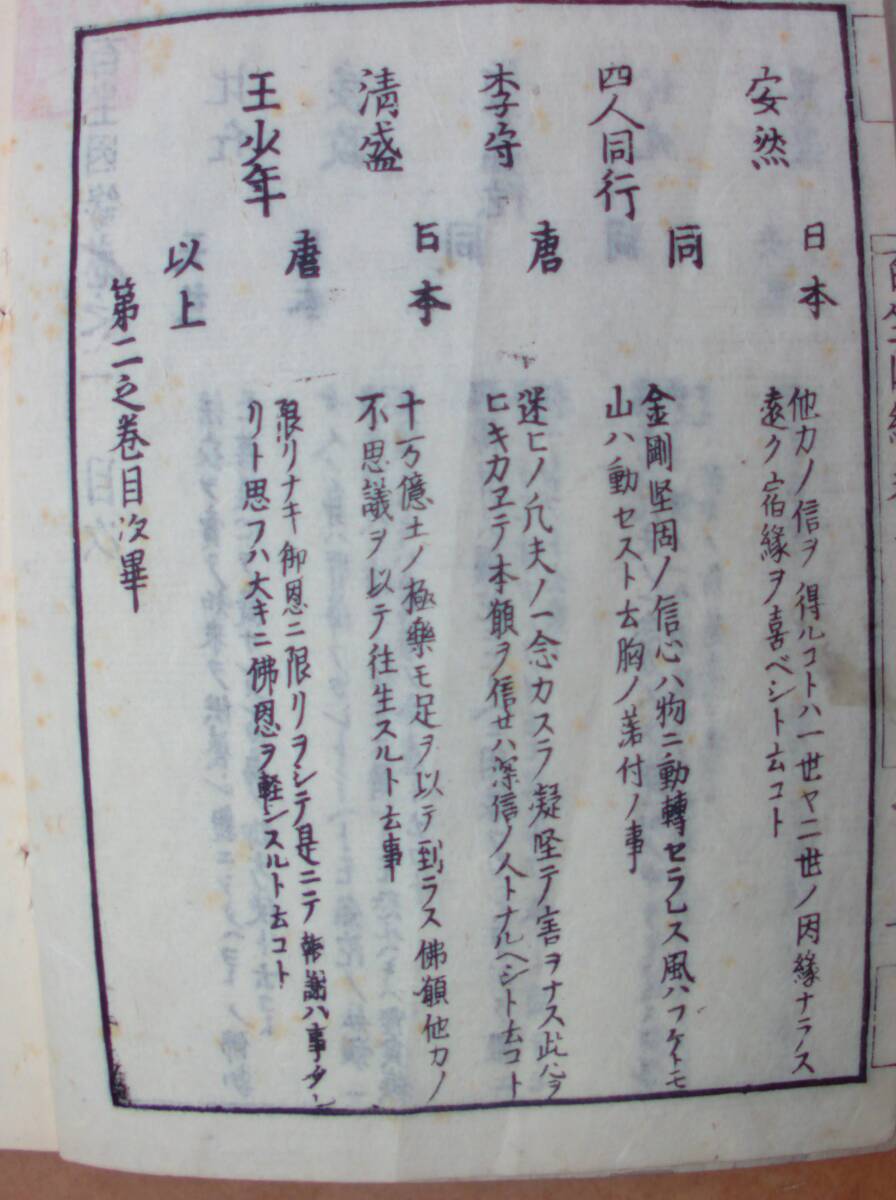 安然
日本
他力ノ信ヲ得ルコトハ一世ヤ二世ノ因縁ナラス
遠ク宿縁ヲ喜ベシト云コト
四人同行
同
金剛坚固ノ信心ハ物ニ動轉セラレス風ハフケトモ
山ハ動セスト云胸ノ落付ノ事
李守
唐
迷ヒノ凡夫ノ一念カスラ凝堅テ害ヲナス此心ヲ
ヒキカヱテ本願ヲ信せハ深信ノ人トナルヘシト云コト
清盛
日本
十万億土ノ極樂モ足ヲ以テ到ラス佛願他力ノ
不思議ヲ以テ往生スルト云事
王少年
唐
限リナキ御恩ニ限リヲシテ是ニテ報謝ハ事タレ
リト思フハ大キニ佛恩ヲ軽シスルト云コト
以上
第二之巻目次畢